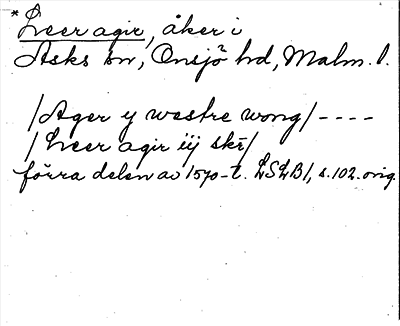 *Leer agir, åker i
Asks sn, Onsjö hd, Malm. l.
/Ager y westre wong/ ----
/Leer agir iij skr/
förra delen av 1570-t. LSLB1, s.102. orig.